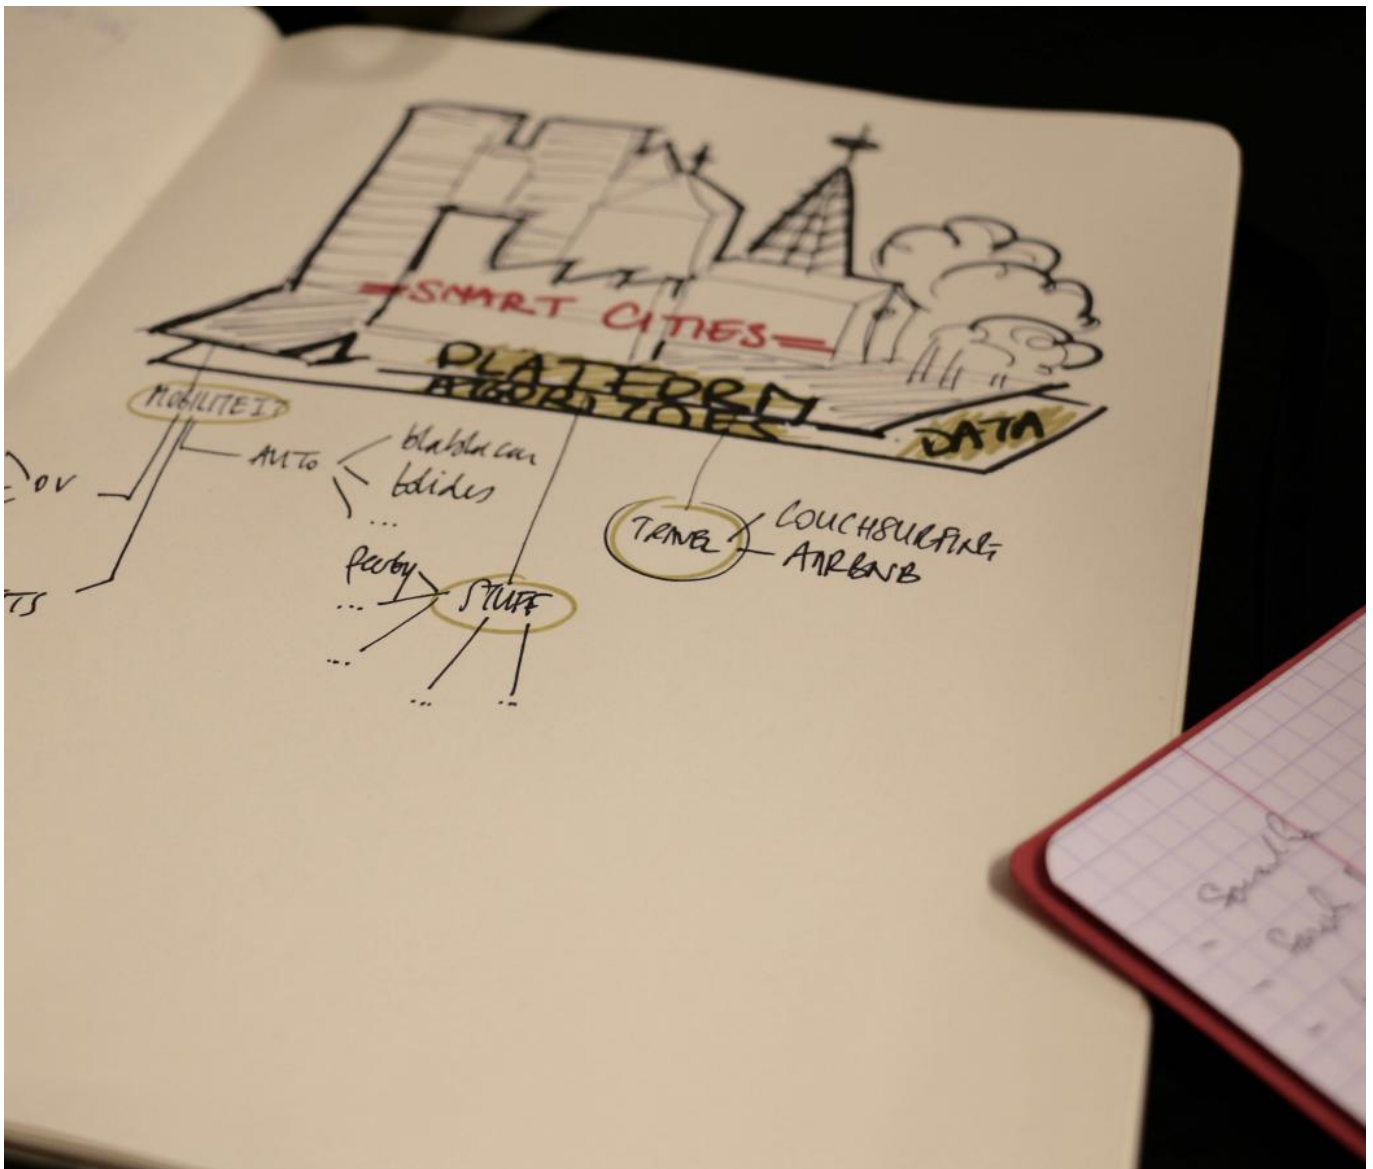 =SMART CITIES=
PLATFORM
ALGORITMES
DATA
MOBILITEIT
OV
AUTO
blablacar
...
TS
TRAVEL
COUCHSURFING
AIRBNB
peerby
STUFF
...
...
...
...